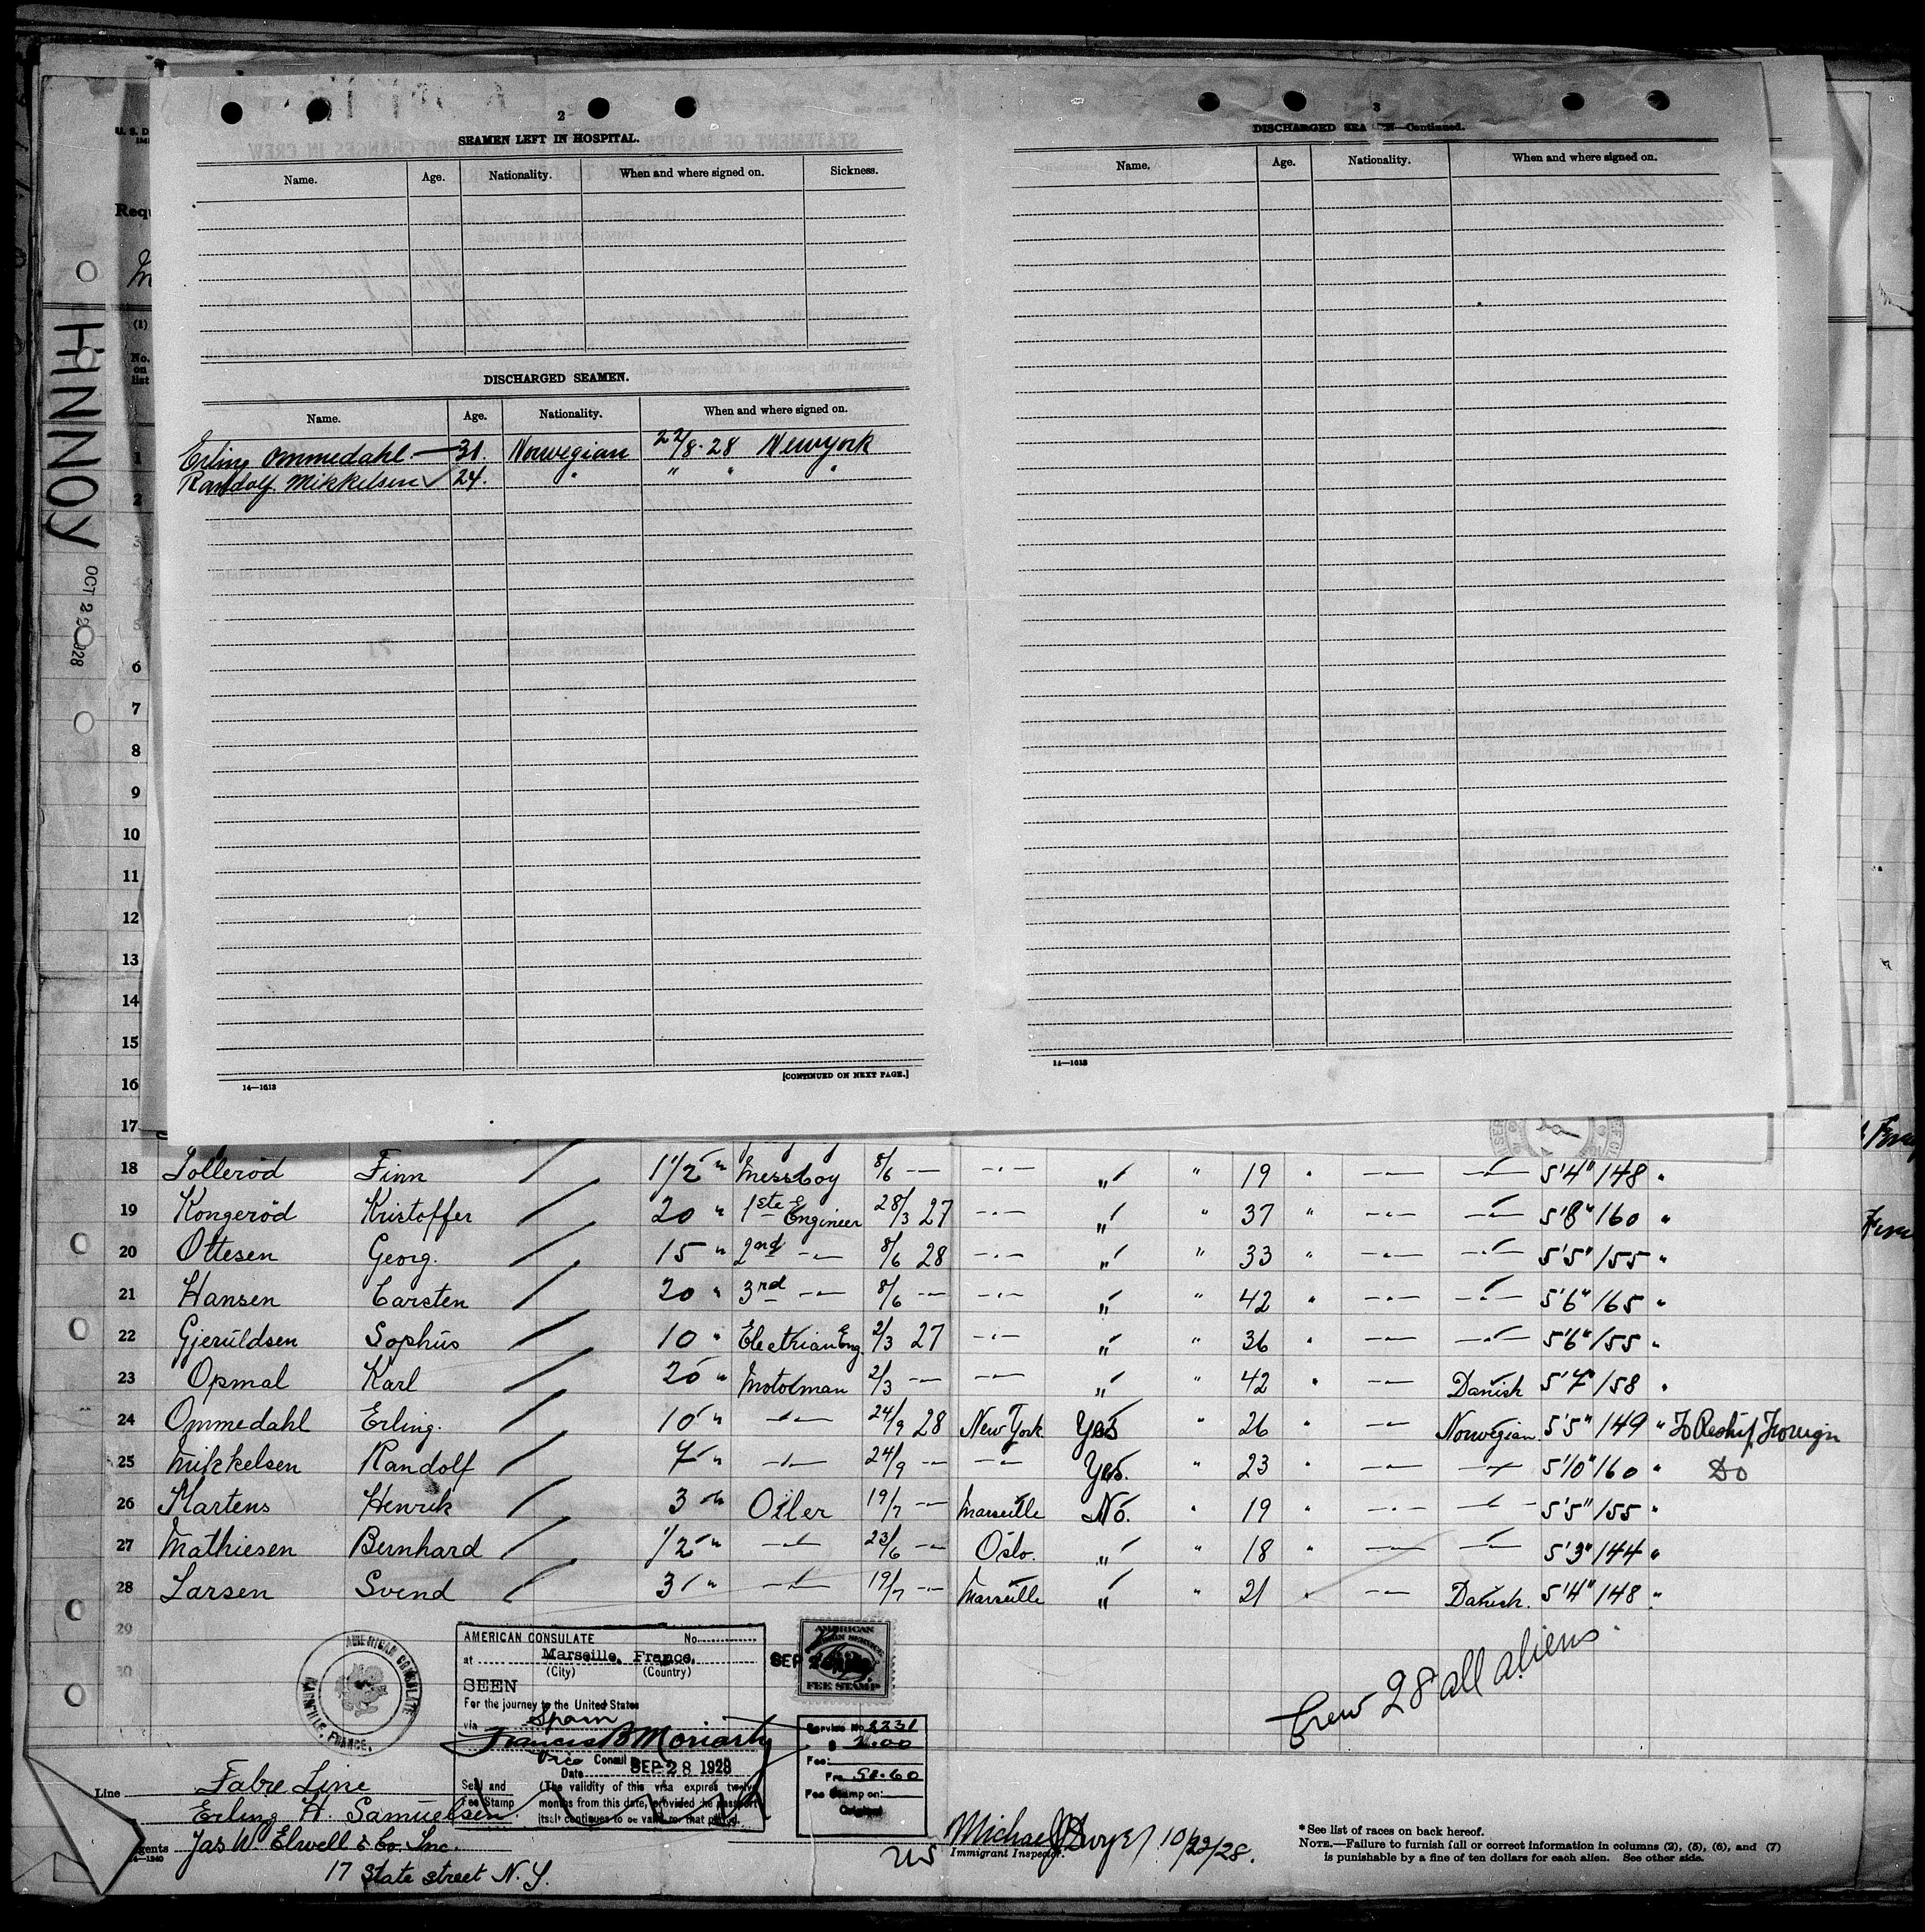 2
SEAMEN LEFT IN HOSPITAL.
Name. Age. Nationality. When and where signed on. Sickness.
DISCHARGED SEAMEN.
Name. Age. Nationality. When and where signed on.
Erling Ommedahl 31. Norwegian 22/8-28 Newyork
Randolf Mikkelsen 24. " " " "
14—1613
[CONTINUED ON NEXT PAGE.]
3
DISCHARGED SEAMEN—Continued.
Name. Age. Nationality. When and where signed on.
14—1613
HINNOY
OCT 22 1928
U. S. D
Requ
(1)
No. on list
1
2
3
4
5
6
7
8
9
10
11
12
13
14
15
16
17
18 Tolleröd Finn 1 1/2 " Messboy 8/6 — —"— " " 19 " —"— —"— 5'4" 148 "
19 Kongeröd Kristoffer 20 " 1ste Engineer 28/3 27 —"— " " 37 " —"— —"— 5'8" 160 "
20 Ottesen Georg. 15 " 2nd —"— 8/6 28 —"— " " 33 " —"— —"— 5'5" 155 "
21 Hansen Carsten 20 " 3rd —"— 8/6 —"— —"— " " 42 " —"— —"— 5'6" 165 "
22 Gjerüldsen Sophüs 10 " Electrian Eng. 2/3 27 —"— " " 36 " —"— —"— 5'6" 155 "
23 Opmal Karl 20 " Motolman 2/3 —"— —"— " " 42 " —"— Danish 5'7" 158 "
24 Ommedahl Erling. 10 " —"— 24/9 28 New York Yes " 26 " —"— Norwegian. 5'5" 149 " To Reship Foreign
25 Mikkelsen Randolf 7 " —"— 24/9 —"— —"— Yes. " 23 " —"— —"— 5'10" 160 " Do
26 Martens Henrik 3 " Oiler 19/7 —"— Marseille No. " 19 " —"— —"— 5'5" 155 "
27 Mathiesen Bernhard 1/2 " —"— 23/6 —"— Oslo. " " 18 " —"— —"— 5'3" 144 "
28 Larsen Svend 3 " —"— 19/7 —"— Marseille " " 21 " —"— Danish. 5'4" 148 "
29
30
Crew 28 all aliens.
AMERICAN CONSULATE
MARSEILLE, FRANCE.
AMERICAN CONSULATE No.
at Marseille, France.
(City) (Country)
SEEN
For the journey to the United States
via Spain
Francis B Moriarty
Vice Consul
Date SEP 28 1928
Seal and Fee Stamp
(The validity of this visa expires twelve
months from this date, provided the passport
itself continues to be valid for that period.
SEP
AMERICAN
FEE STAMP
Service No. 2231
$ 2.00
Fee:
Frs. 51.60
Fee Stamp on:
Original
Line Fabre Line
Erling H. Samuelsen
Agents Jas W. Elwell & Co. Inc.
17 State street N. Y.
Michael J Dwyer 10/22/28.
Immigrant Inspector.
* See list of races on back hereof.
NOTE.—Failure to furnish full or correct information in columns (2), (5), (6), and (7)
is punishable by a fine of ten dollars for each alien. See other side.